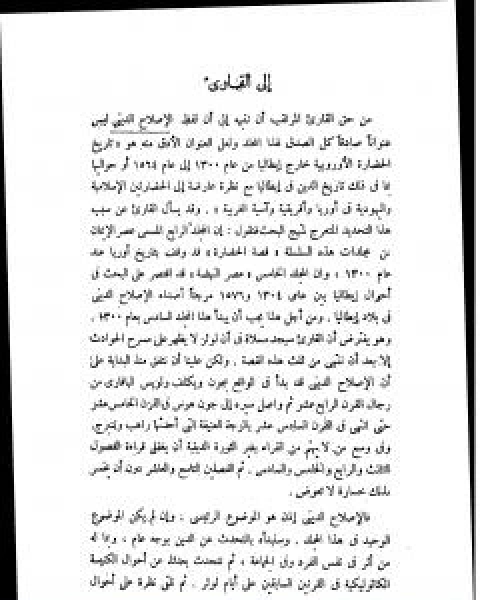 إلى القارئ
من حق القارئ المرتقب أن ننبه إلى أن لفظ الإصلاح الديني ليس
عنواناً صادقاً كل الصدق لهذا المجلد ولعل العنوان الأدق منه هو « تاريخ
الحضارة الأوروبية خارج إيطاليا من عام ١٣٠٠ إلى عام ١٥٦٤ أو حواليها
بما في ذلك تاريخ الدين في إيطاليا مع نظرة عارضة إلى الحضارتين الإسلامية
واليهودية في أوربا وأفريقية وآسية الغربية » . وقد يسأل القارئ عن سبب
هذا التحديد المتعرج لنهج البحث فنقول : إن المجلد الرابع المسمى عصر الإيمان
من مجلدات هذه السلسلة « قصة الحضارة » قد وقف بتاريخ أوربا عند
عام ١٣٠٠ ، وإن المجلد الخامس « عصر النهضة » قد اقتصر على البحث في
أحوال إيطاليا بين عامي ١٣٠٤ و ١٥٧٦ مرجئاً أصداء الإصلاح الديني
في بلاد إيطاليا . ومن أجل هذا يجب أن يبدأ هذا المجلد السادس بعام ١٣٠٠ .
وهو يفترض أن القارئ سيجد مسلاة في أن لوثر لا يظهر على مسرح الحوادث
إلا بعد أن ننتهي من ثلث هذه القصة . ولكن علينا أن نتفق منذ البداية على
أن الإصلاح الديني قد بدأ في الواقع بجون ويكلف ولويس البافاري من
رجال القرن الرابع عشر ثم واصل سيره إلى جون هوس في القرن الخامس عشر
حتى انتهى في القرن السادس عشر بالرجة العنيفة التي أحدثها راهب وتنبرج ،
وفي وسع من لا يهتم من القراء بغير الثورة الدينية أن يغفل قراءة الفصول
الثالث والرابع والخامس والسادس ، ثم الفصلين التاسع والعاشر دون أن يخسر
بذلك خسارة لا تعوض .
فالإصلاح الديني إذن هو الموضوع الرئيسي ، وإن لم يكن الموضوع
الوحيد في هذا المجلد . وسنبدأه بالتحدث عن الدين بوجه عام ، وما له
من أثر في نفس الفرد وفي الجماعة ، ثم نتحدث بعدئذ عن أحوال الكنيسة
الكاثوليكية في القرنين السابقين على أيام لوثر . ثم نلقي نظرة على أحوال